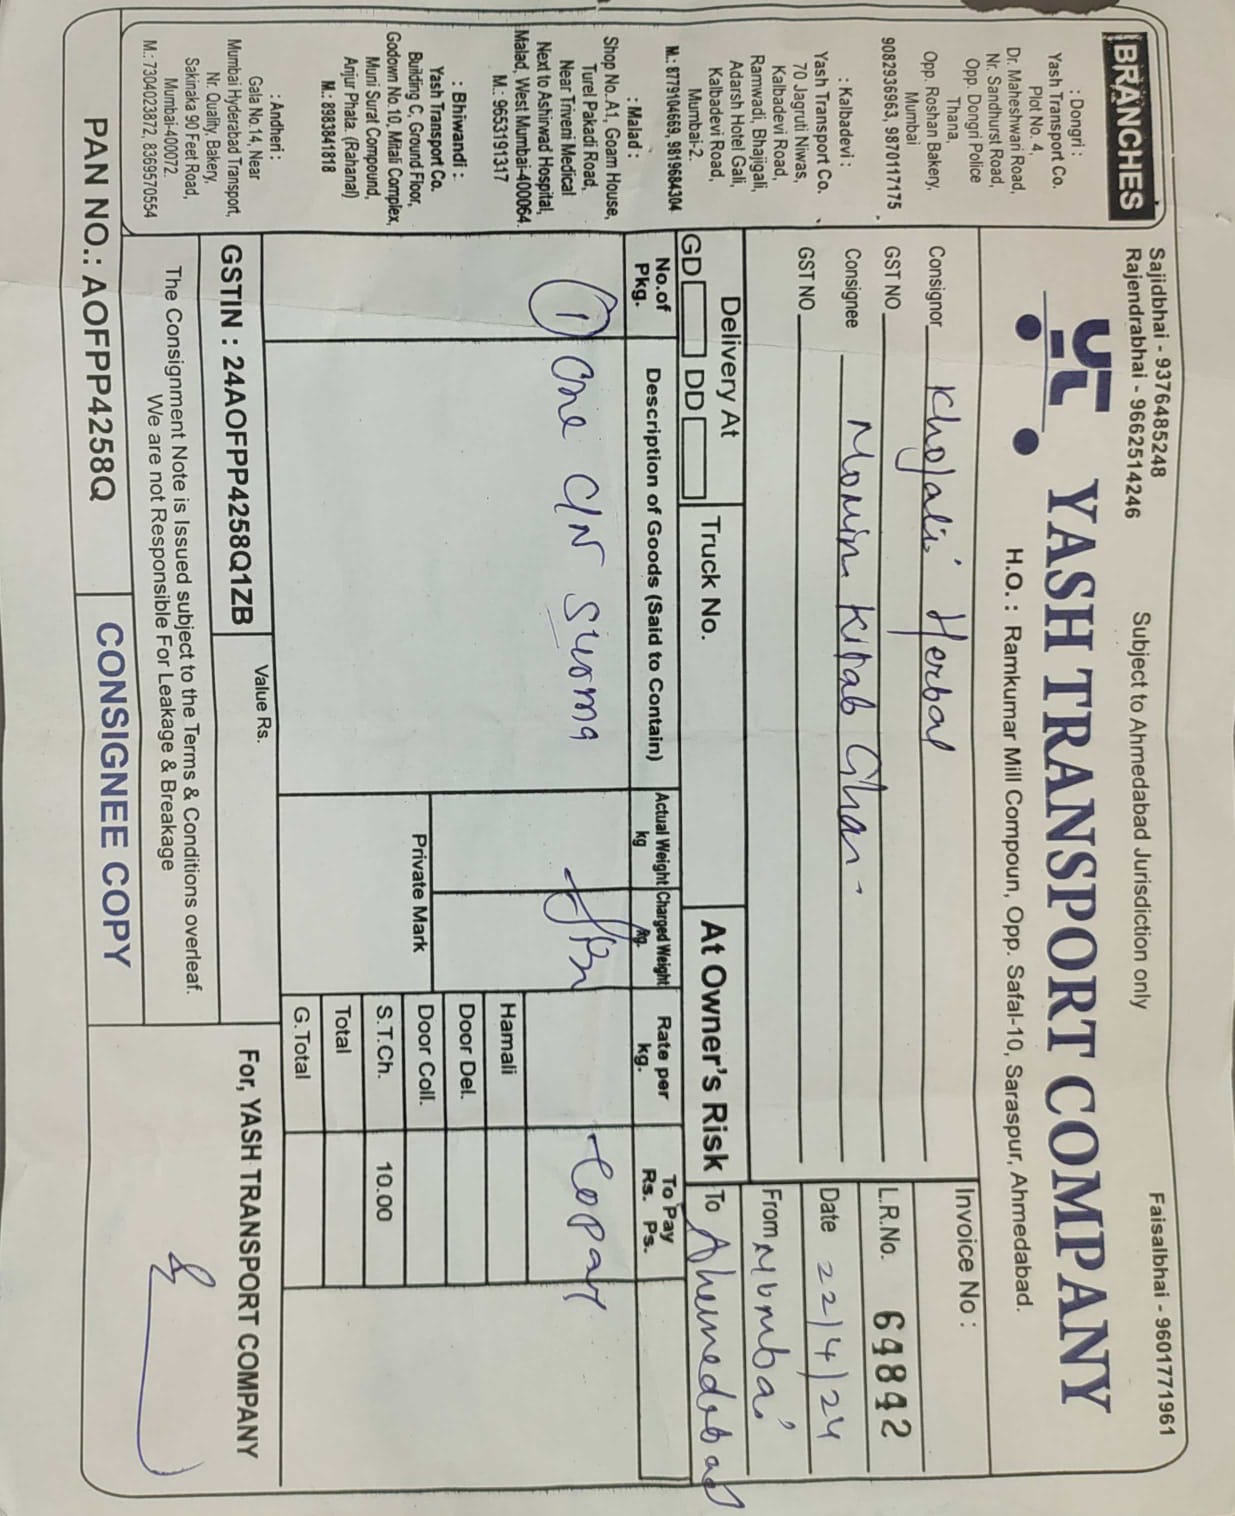 BRANCHES
: Dongri :
Yash Transport Co.
Plot No. 4,
Dr. Maheshwari Road,
Nr. Sandhurst Road,
Opp. Dongri Police
Thana,
Opp. Roshan Bakery,
Mumbai
9082936963, 9870117175
: Kalbadevi :
Yash Transport Co.
70 Jagruti Niwas,
Kalbadevi Road,
Ramwadi, Bhajigali,
Adarsh Hotel Gali,
Kalbadevi Road,
Mumbai-2.
M.: 8779104669, 9819684304
: Malad :
Shop No. A1, Goam House,
Turel Pakadi Road,
Near Triveni Medical
Next to Ashirwad Hospital,
Malad, West Mumbai-400064.
M.: 9653191317
: Bhiwandi :
Yash Transport Co.
Building C, Ground Floor,
Godown No. 10, Mitali Complex,
Muni Surat Compound,
Anjur Phata. (Rahanal)
M.: 8983841818
: Andheri :
Gala No. 14, Near
Mumbai Hyderabad Transport,
Nr. Quality, Bakery,
Sakinaka 90 Feet Road,
Mumbai-400072.
M.: 7304023872, 8369570554
Sajidbhai - 9376485248
Rajendrabhai - 9662514246
Subject to Ahmedabad Jurisdiction only
Faisalbhai - 9601771961
YASH TRANSPORT COMPANY
H.O. : Ramkumar Mill Compoun, Opp. Safal-10, Saraspur, Ahmedabad.
Consignor Khojali Herbal
GST NO
Consignee Momin Kitab Ghar.
GST NO
Invoice No :
L.R.No. 64842
Date 22/4/24
From Mumbai
To Ahemedabad
Delivery At
GD DD
Truck No.
At Owner's Risk
No.of Pkg.
Description of Goods (Said to Contain)
Actual Weight kg
Charged Weight kg.
Rate per kg.
To Pay Rs. Ps.
1 One C/N Surma
Topay
Hamali
Door Del.
Door Coll.
S.T.Ch. 10.00
Total
G.Total
Private Mark
GSTIN : 24AOFPP4258Q1ZB
Value Rs.
The Consignment Note is Issued subject to the Terms & Conditions overleaf.
We are not Responsible For Leakage & Breakage
For, YASH TRANSPORT COMPANY
PAN NO.: AOFPP4258Q
CONSIGNEE COPY